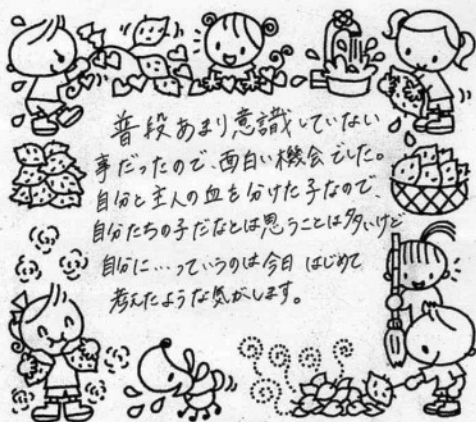 普段あまり意識していない
事だったので、面白い機会でした。
自分と主人の血を分けた子なので
自分たちの子だなとは思うことは多いけど
自分に…っていうのは今日 はじめて
考えたような気がします。